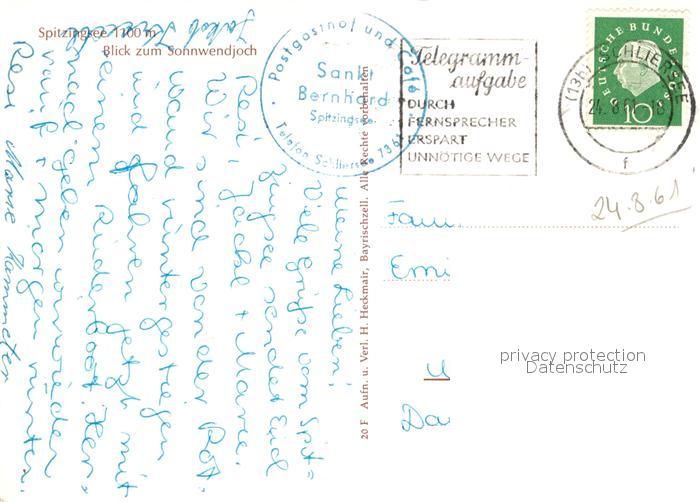 Spitzingsee 1100 m
Blick zum Sonnwendjoch
Postgasthof und Café
Sankt
Bernhard
Spitzingsee
Telefon Schliersee 7367
Telegramm-
aufgabe
DURCH
FERNSPRECHER
ERSPART
UNNÖTIGE WEGE
DEUTSCHE BUNDESPOST
10
(13b) SCHLIERSEE
24.8.61-18
f
24.8.61
Meine Lieben!
Viele Grüße vom Spit=
zingsee sendet Euch
Resi, Jackl + Marie.
Wir sind von der Rot=
wand runtergestiegen
und fahren jetzt mit
einem Ruderboot. Her=
nach gehen wir wieder
rauf + morgen runter.
Resi Marie
Jakob
20 F Aufn. u. Verl. H. Heckmair, Bayrischzell. Alle Rechte vorbehalten
Fam.
Emi
U
Da
privacy protection
Datenschutz